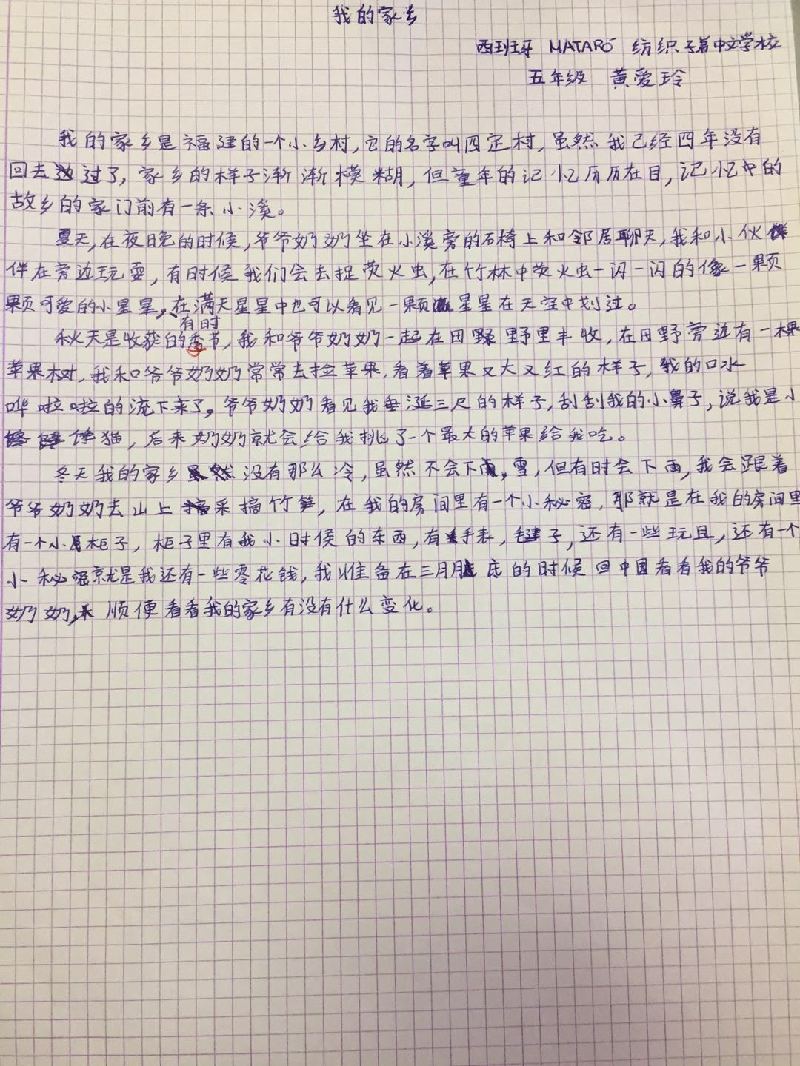 我的家乡
西班牙 MATARÓ 纺织 中文学校
五年级 黄爱玲
我的家乡是福建的一个小乡村，它的名字叫四定村，虽然我已经四年没有
回去过了，家乡的样子渐渐模糊，但童年的记忆历历在目，记忆中的
故乡的家门前有一条小溪。
夏天，在夜晚的时候，爷爷奶奶坐在小溪旁的石椅上和邻居聊天，我和小伙
伴在旁边玩耍，有时候我们会去捉萤火虫，在竹林中萤火虫一闪一闪的像一颗
颗可爱的小星星，在满天星星中也可以看见一颗流星星在天空中划过。
有时
秋天是收获的季节，我和爷爷奶奶一起在田野里丰收，在田野旁边有一棵
苹果树，我和爷爷奶奶常常去捡苹果，看着苹果又大又红的样子，我的口水
哗啦啦的流下来了，爷爷奶奶看见我垂涎三尺的样子，刮刮我的小鼻子，说我是小
馋猫，后来奶奶就会给我挑了一个最大的苹果给我吃。
冬天我的家乡没有那么冷，虽然不会下雪，但有时会下雨，我会跟着
爷爷奶奶去山上采摘竹笋，在我的房间里有一个小秘密，那就是在我的房间里
有一个小柜子，柜子里有我小时候的东西，有手表，毽子，还有一些玩具，还有一个
小秘密就是我还有一些零花钱，我准备在三月底的时候回中国看看我的爷爷
奶奶，顺便看看我的家乡有没有什么变化。